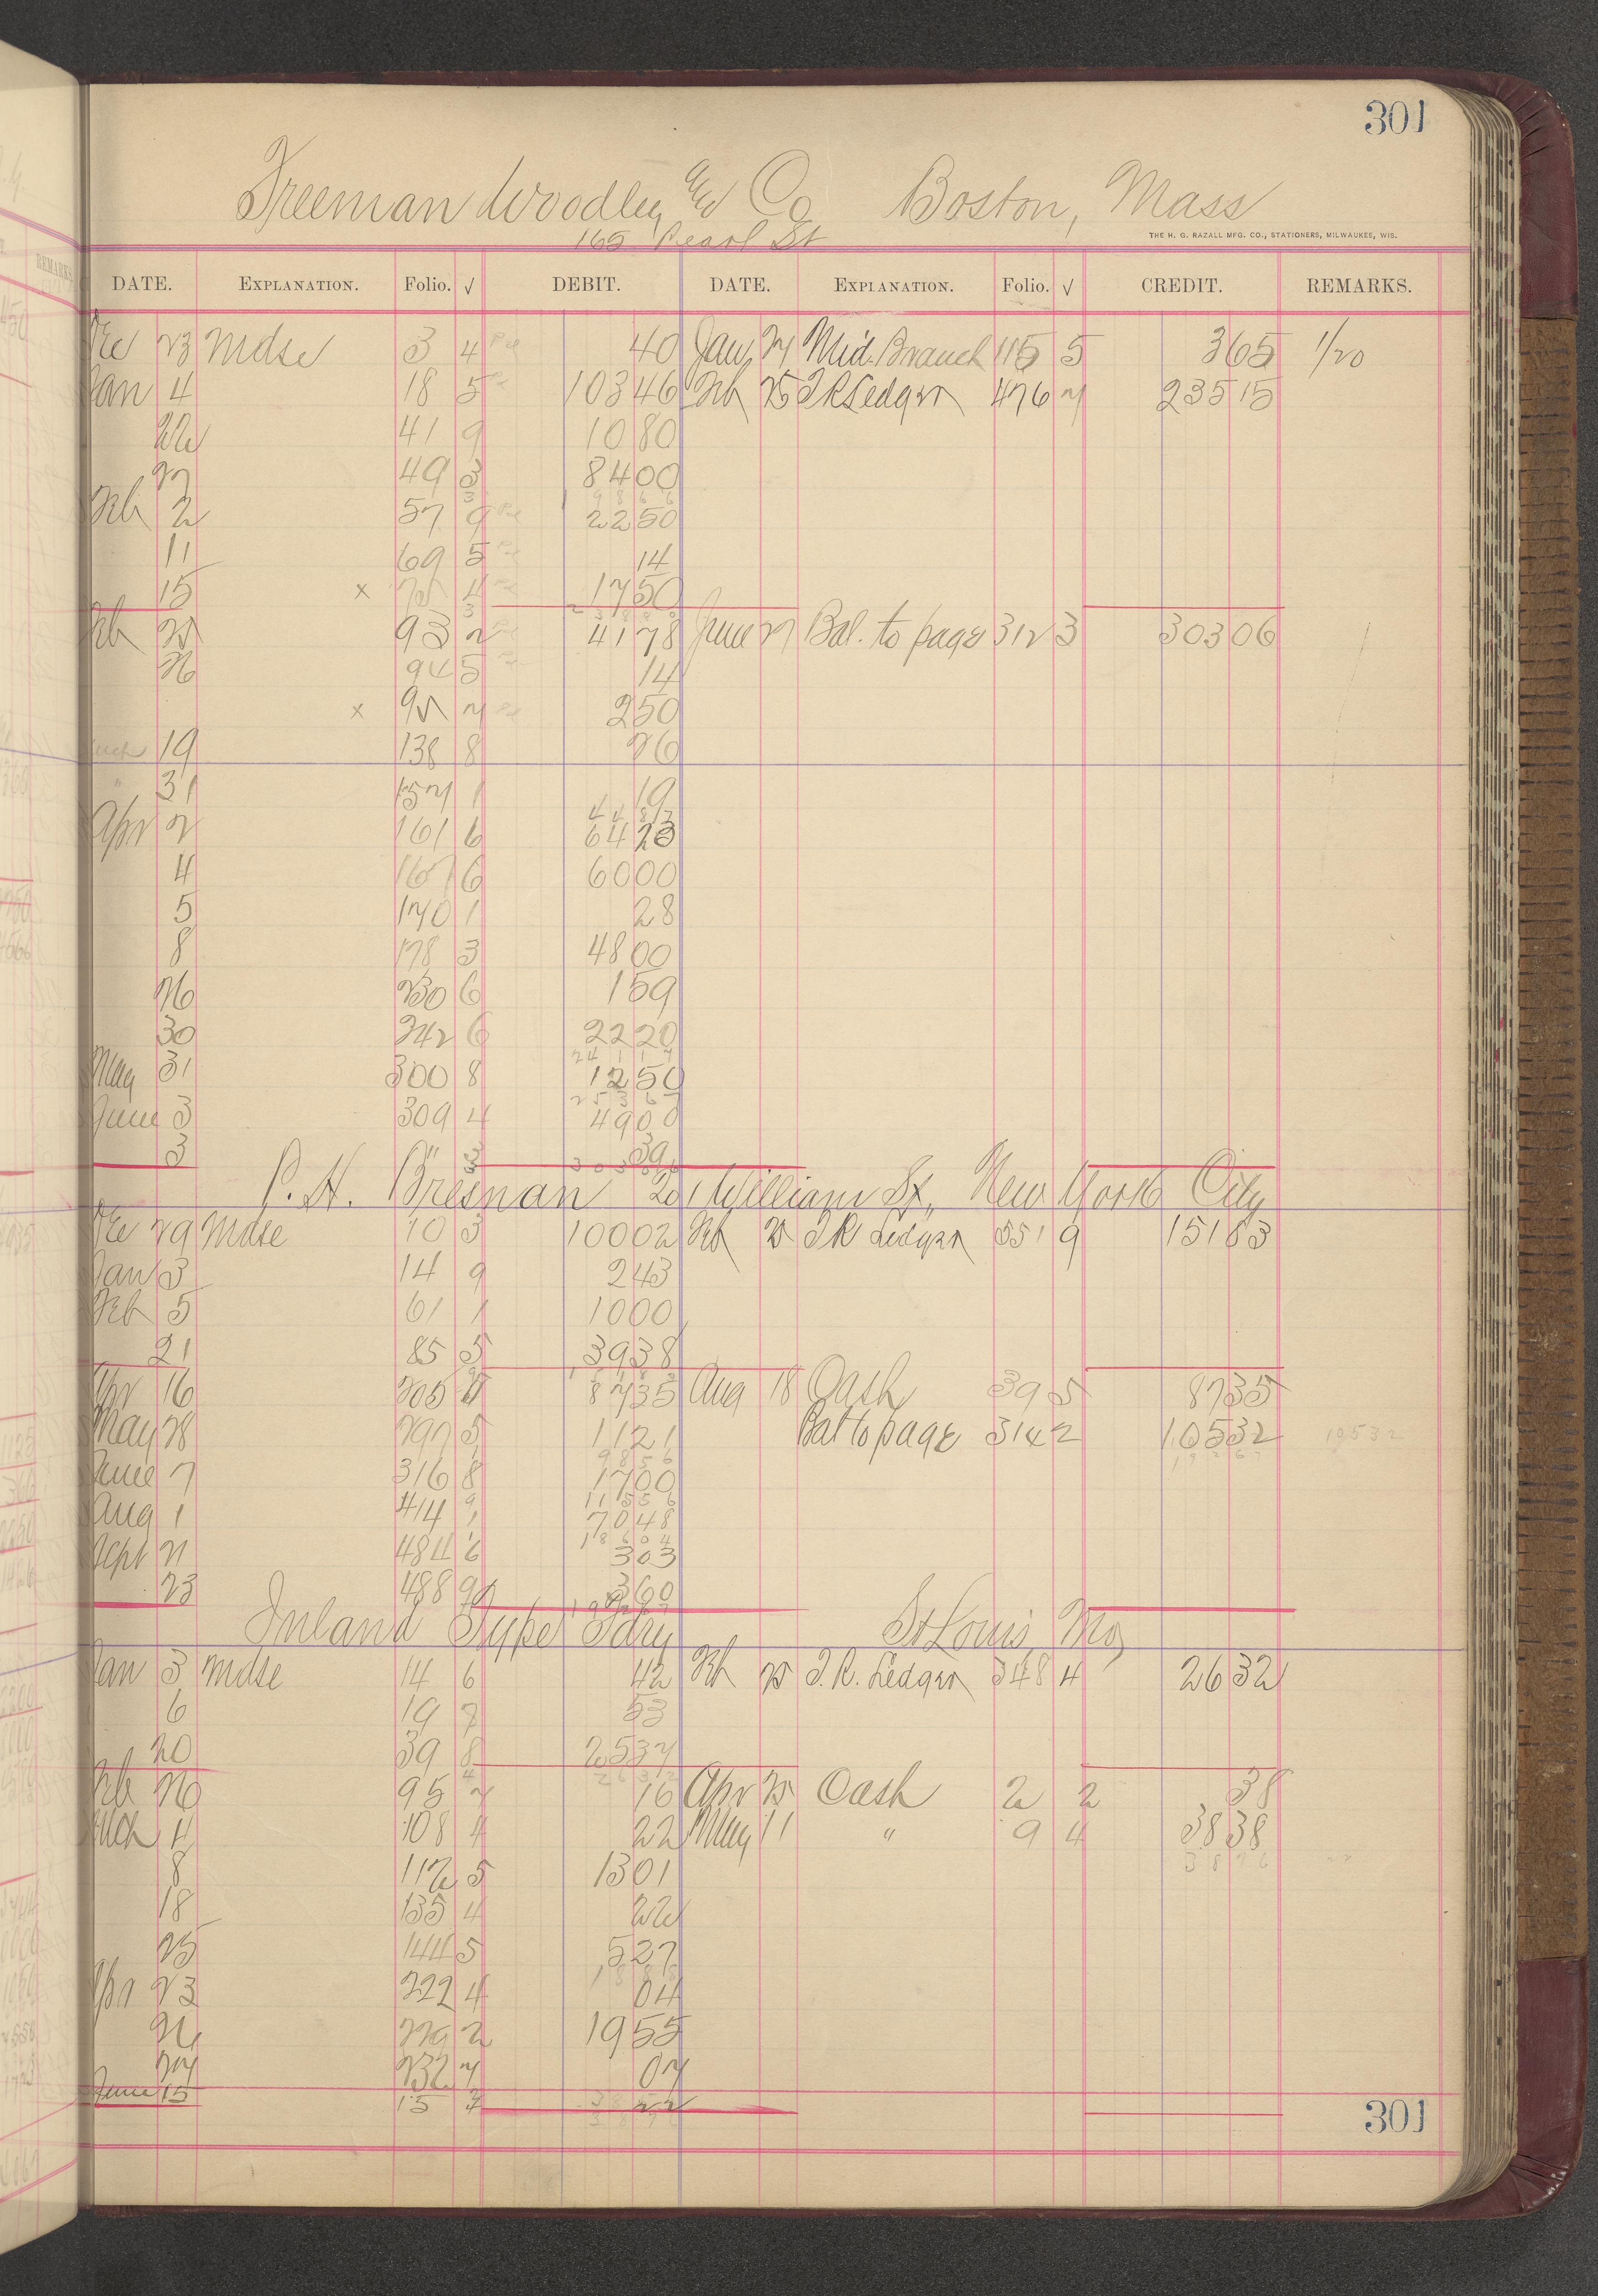 301
Freeman Woodley and Co Boston, Mass
165 Pearl St
THE H. G. RAZALL MFG. CO., STATIONERS, MILWAUKEE, WIS.
DATE. EXPLANATION. Folio. √ DEBIT. DATE. EXPLANATION. Folio. √ CREDIT. REMARKS.
Dec 23 Mdse 3 4 40 Jan 27 Mid. Branch 115 5 3 65 1/20
Jan 4 18 5 103 46 Feb 25 T R Ledger 476 7 235 15
22 41 9 10 80
27 49 3 84 00
198 66
Feb 2 57 9 22 50
11 69 5 14
15 x 75 4 17 50
238 80
Feb 25 93 2 41 78 June 27 Bal. to page 312 3 303 06
26 94 5 14
x 95 7 2 50
Mch 19 138 8 26
" 31 157 1 19
44 87
Apr 2 161 6 64 23
4 167 6 60 00
5 170 1 28
8 178 3 48 00
26 230 6 1 59
30 242 6 22 20
241 17
May 31 300 8 12 50
253 67
June 3 309 4 49 00
3 " 3 39
303 06
P. H. Bresnan 201 William St, New York City
Dec 29 Mdse 10 3 100 02 Feb 25 T R Ledger 551 9 151 83
Jan 3 14 9 2 43
Feb 5 61 1 10 00
21 85 5 39 38
Apr 16 205 4 87 35 Aug 18 Cash 39 5 87 35
May 28 297 5 11 21 Bal to page 314 2 105 32 105 32
98 56 192 67
June 7 316 8 17 00
115 56
Aug 1 414 1 70 48
186 04
Sept 21 484 6 3 03
23 488 9 3 60
192 67
Inland Type Fdry St Louis, Mo,
Jan 3 Mdse 14 6 42 Feb 25 T. R. Ledger 348 4 26 32
6 19 7 53
20 39 8 25 37
26 32
Feb 26 95 7 16 Apr 25 Cash 2 2 38
Mch 4 108 4 22 May 11 " 9 4 38 38
8 112 5 13 01 38 76
18 135 4 22
25 144 5 5 27
18 88
Apr 23 222 4 04
26 229 2 19 55
27 232 7 07
June 15 15 22
301